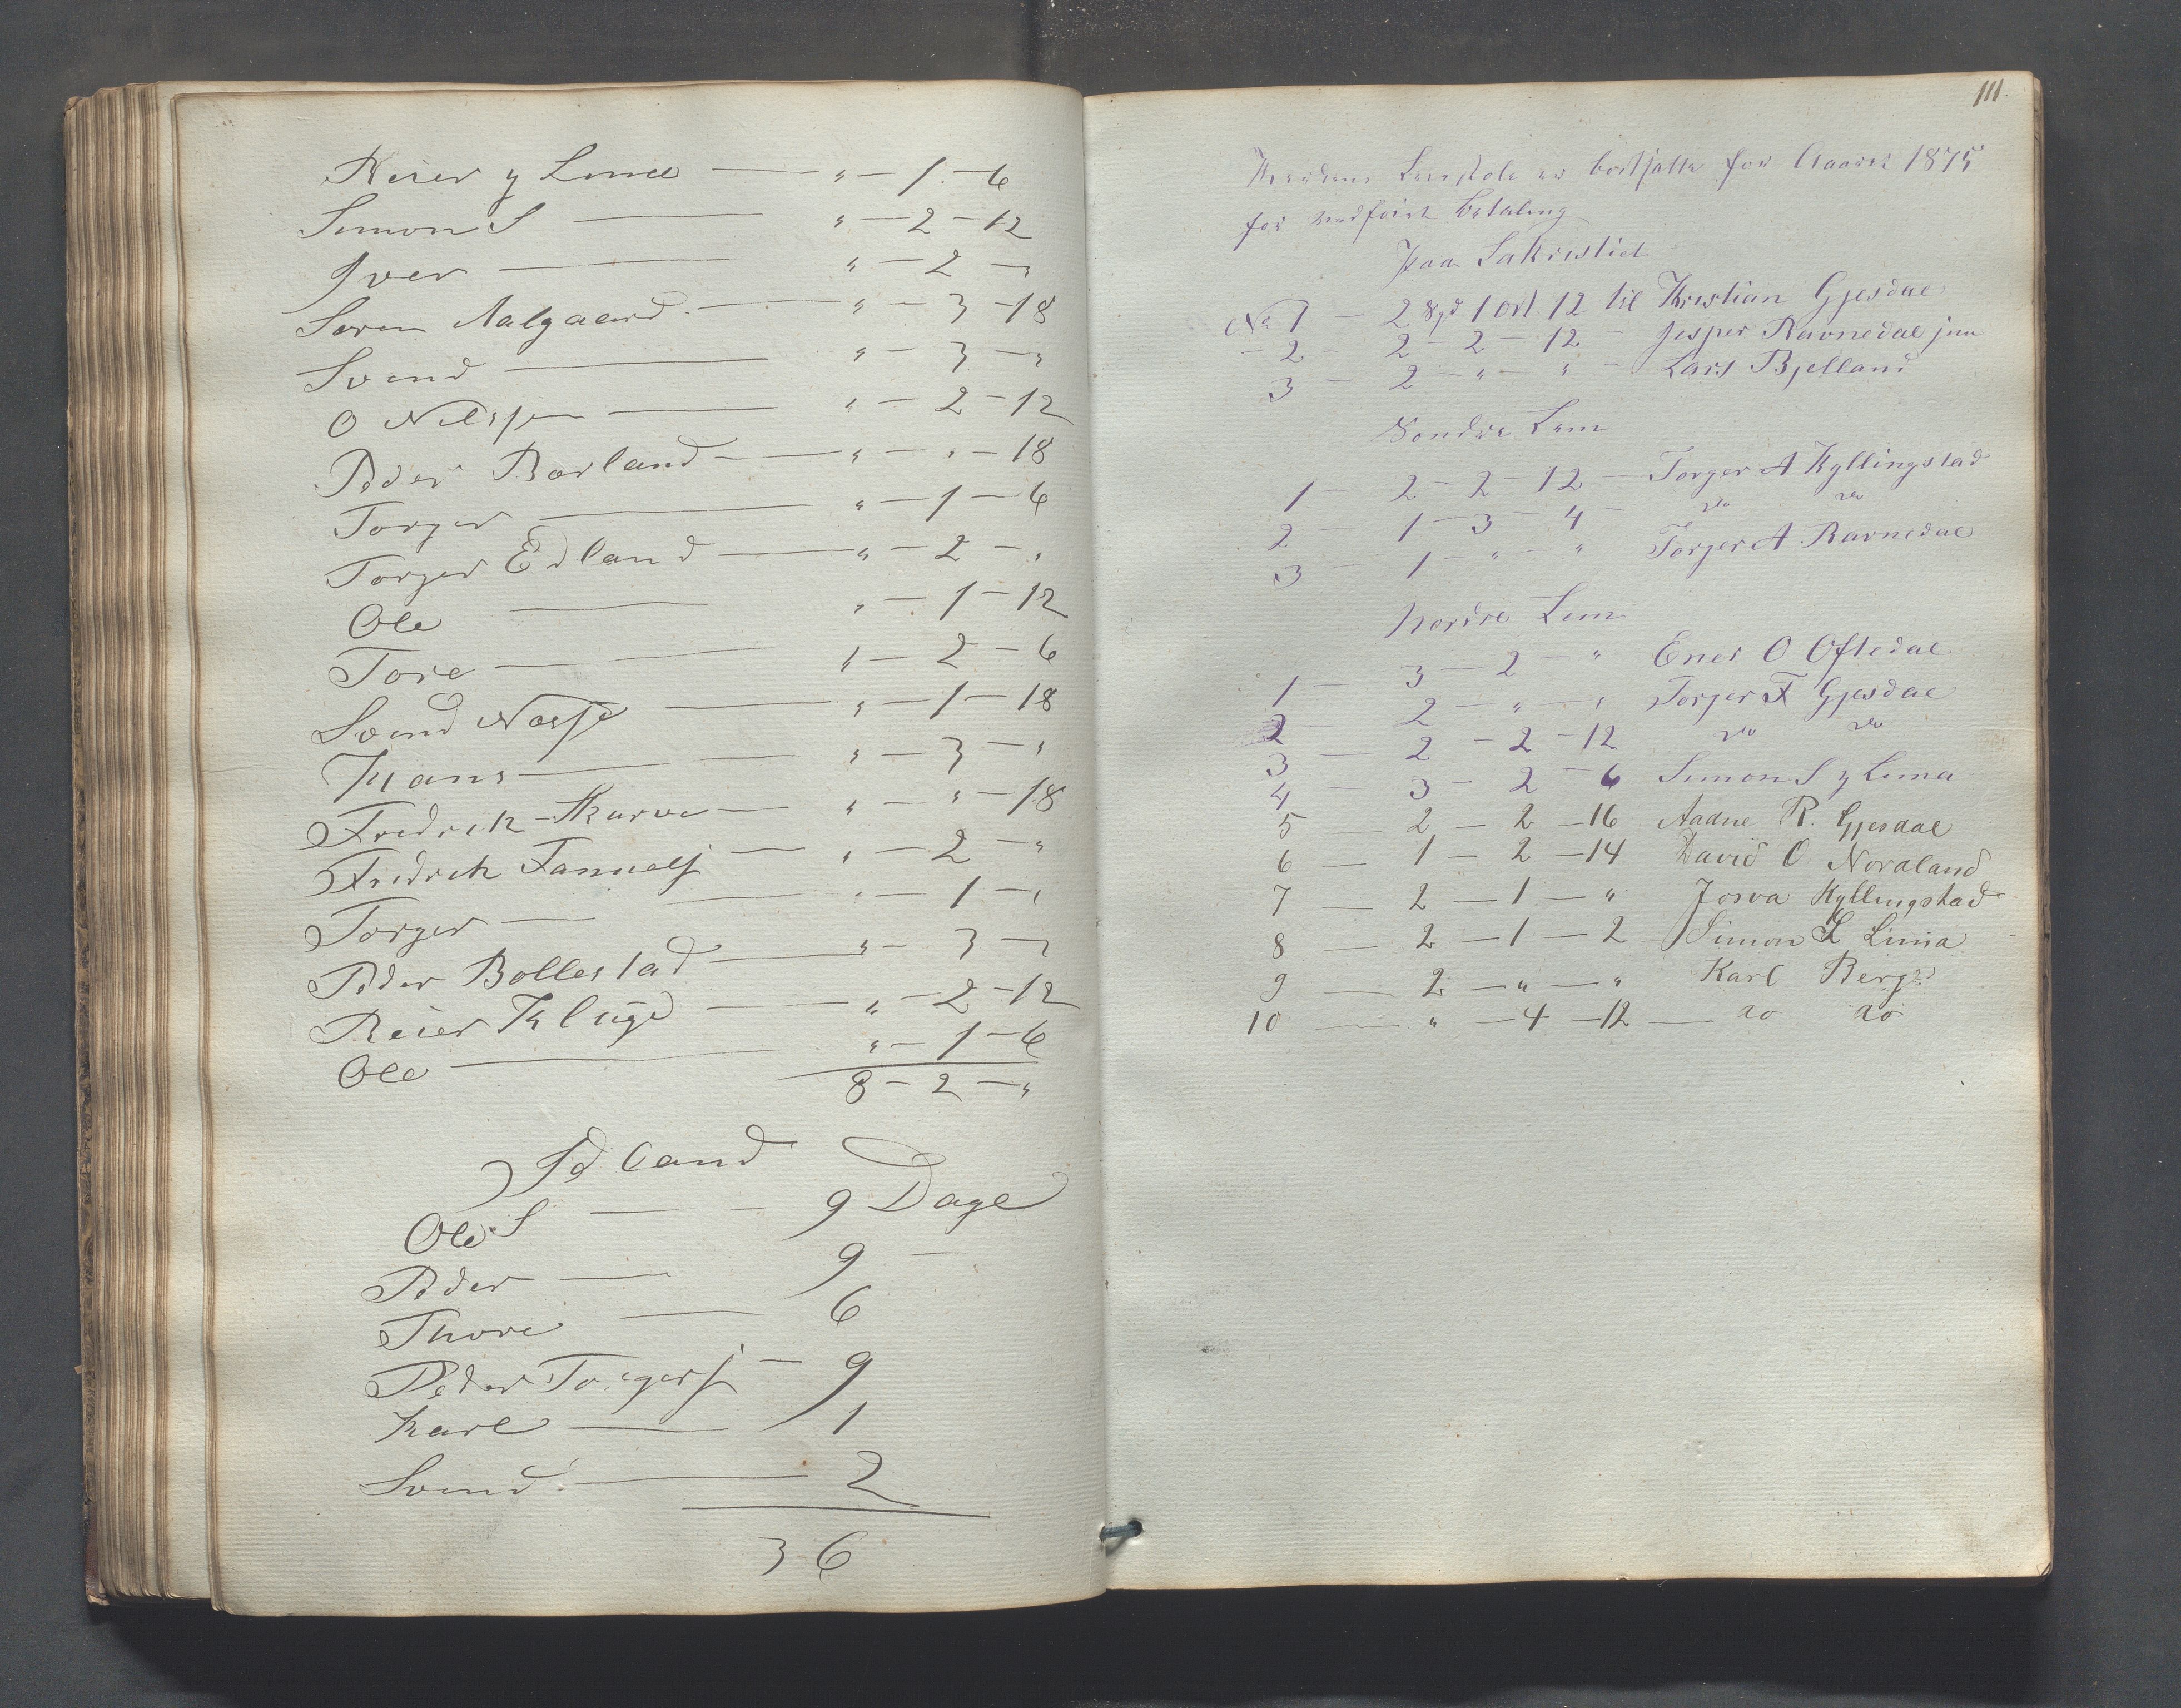 Reier y Lima — " — 1 — 6
Simon S — " — 2 — 12
Iver — " — 2 — "
Søren Aalgaard — " — 3 — 18
Svend — " — 3 — "
O Nilssen — " — 2 — 12
Peder Borland — " — " — 18
Torger — " — 1 — 6
Torger Edland — " — 2 — "
Ole — " — 1 — 12
Tore — 1 — 2 — 6
Svend Næsse — " — 1 — 18
Hans — " — 3 — "
Fredrik Skurve — " — " — 18
Fredrik — " — 2 — "
Torger — " — 1 — "
Peder Bollestad — " — 3 — "
Reier Kluge — " — 2 — 12
Ole — " — 1 — 6
8 — 2 — "
Edland
Ole S — 9 Dage
Peder — 9 —
Thore — 6
Peder Torgers — 9
Karl — 1
Svend — 2
36
111.
er bortsatte for Aaaret 1875
for vedføiet betaling
paa Sakristiet
No 1 — 2 Spd 1 ort 12 til Kristian Gjesdal
- 2 - 2 - 2 - 12 - Jesper Ravnedal jun
3 - 2 - " - " - Lars Bjelland
Søndre Lem
1 - 2 - 2 - 12 - Torger A Kyllingstad
2 - 1 - 3 - 4 - do do
3 - 1 - " - " Torger A. Ravnedal
Nordre Lem
1 - 3 - 2 - " Ener O Oftedal
2 - 2 - " - " Torger F Gjesdal
3 - 2 - 2 - 12 do do
4 - 3 - 2 - 6 Simon S y Lima
5 — 2 — 2 — 16 Aadne R. Gjesdal
6 — 1 — 2 — 14 David O Nordland
7 — 2 — 1 — " Josva Kyllingstad
8 — 2 — 1 — 2 Simon L Lima
9 — 2 — " — " Karl Berge
10 — " — 4 — 12 — do do